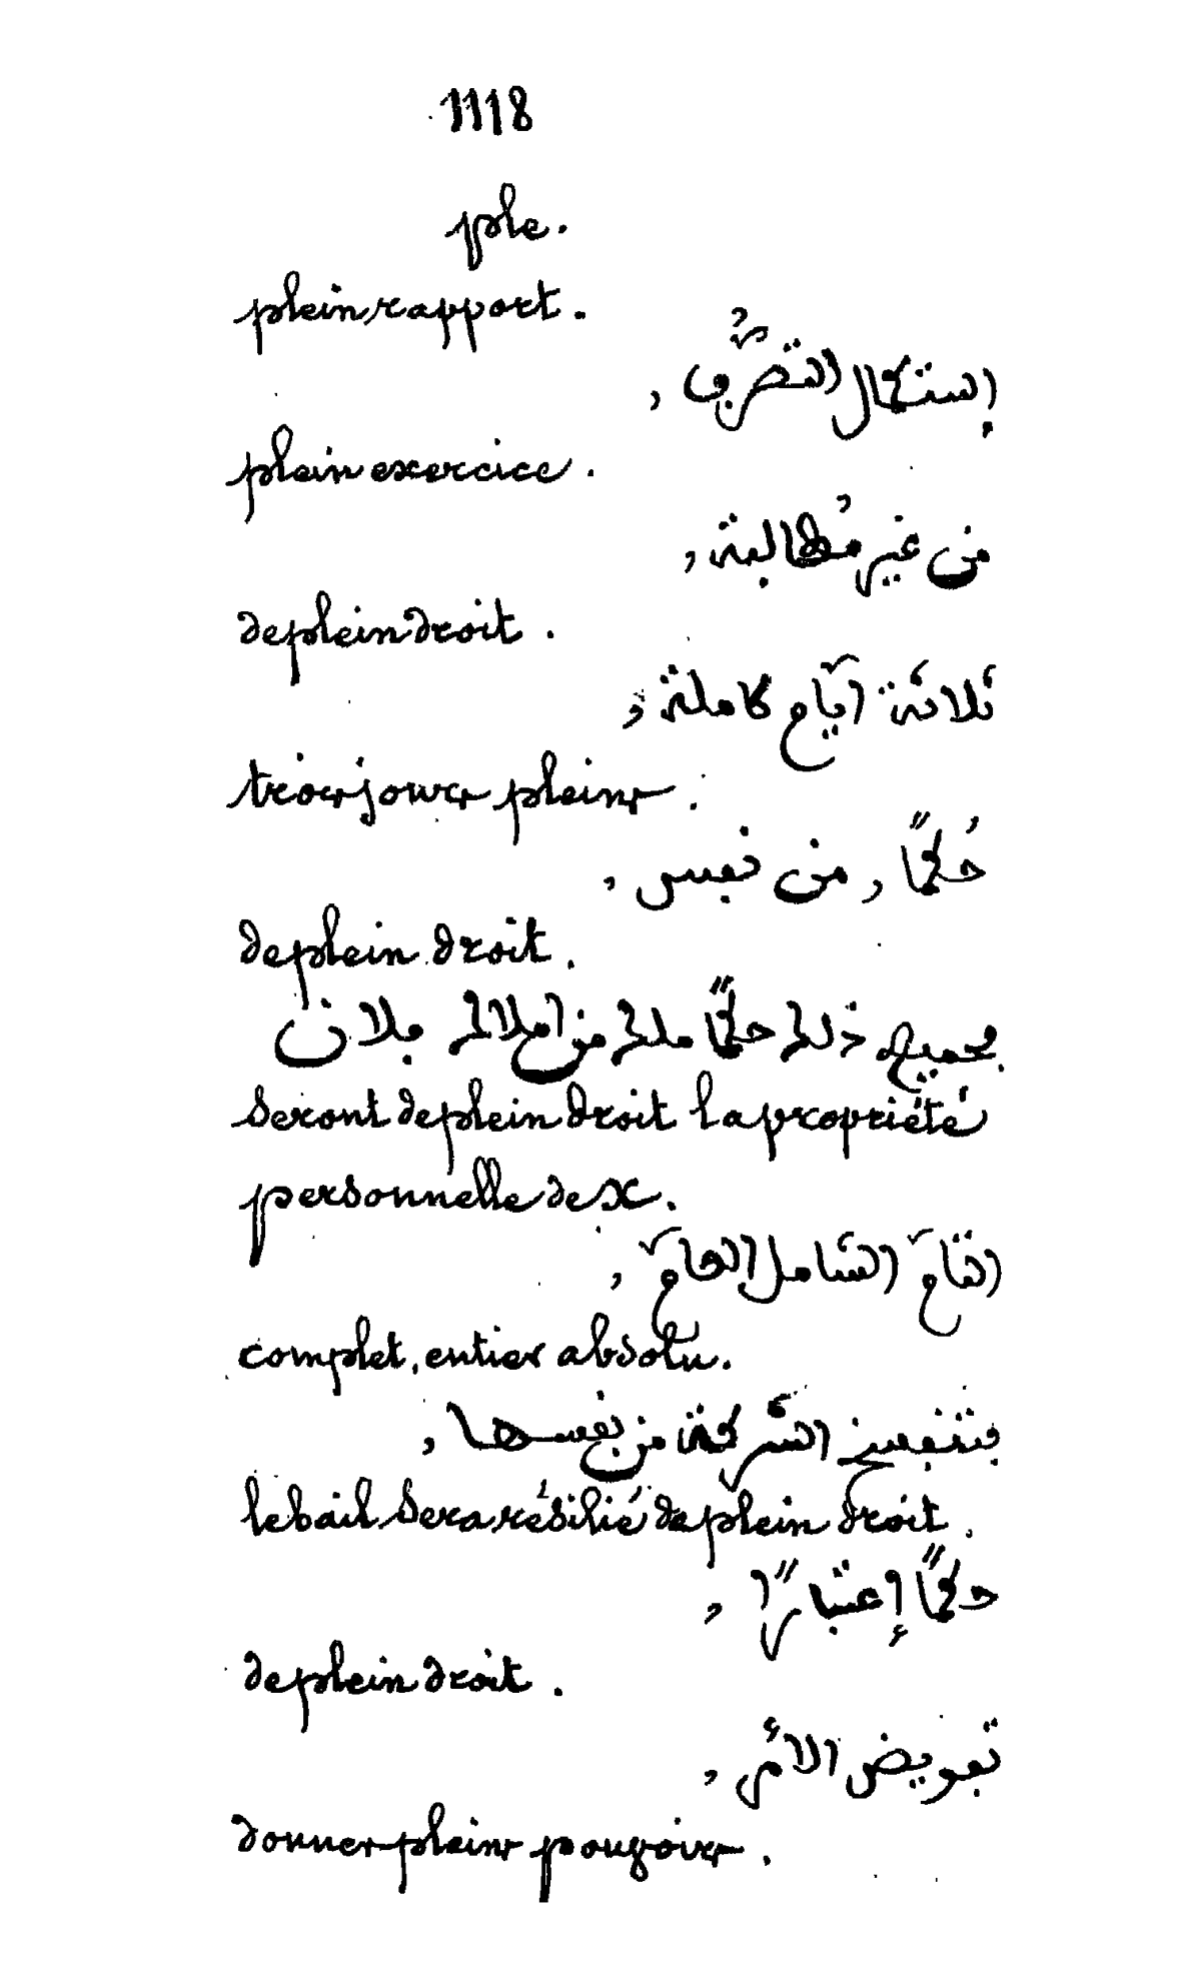 1118
ple.
plein rapport.
إستكمال التصرُّف,
plein exercice.
من غير مُطالبة,
de plein droit.
ثلاثة أيّام كاملة,
trois jours pleins.
حُكمًا, من نفس,
de plein droit.
فجميع ذلك حكمًا ملك من املاك فلان
seront de plein droit la propriété
personnelle de X.
التامّ الشامل العامّ,
complet, entier absolu.
فتنفسخ الشركة من نفسها,
le bail sera résilié de plein droit.
حكمًا إعتبارًا,
de plein droit.
تفويض الأمر,
donner pleins pouvoirs.